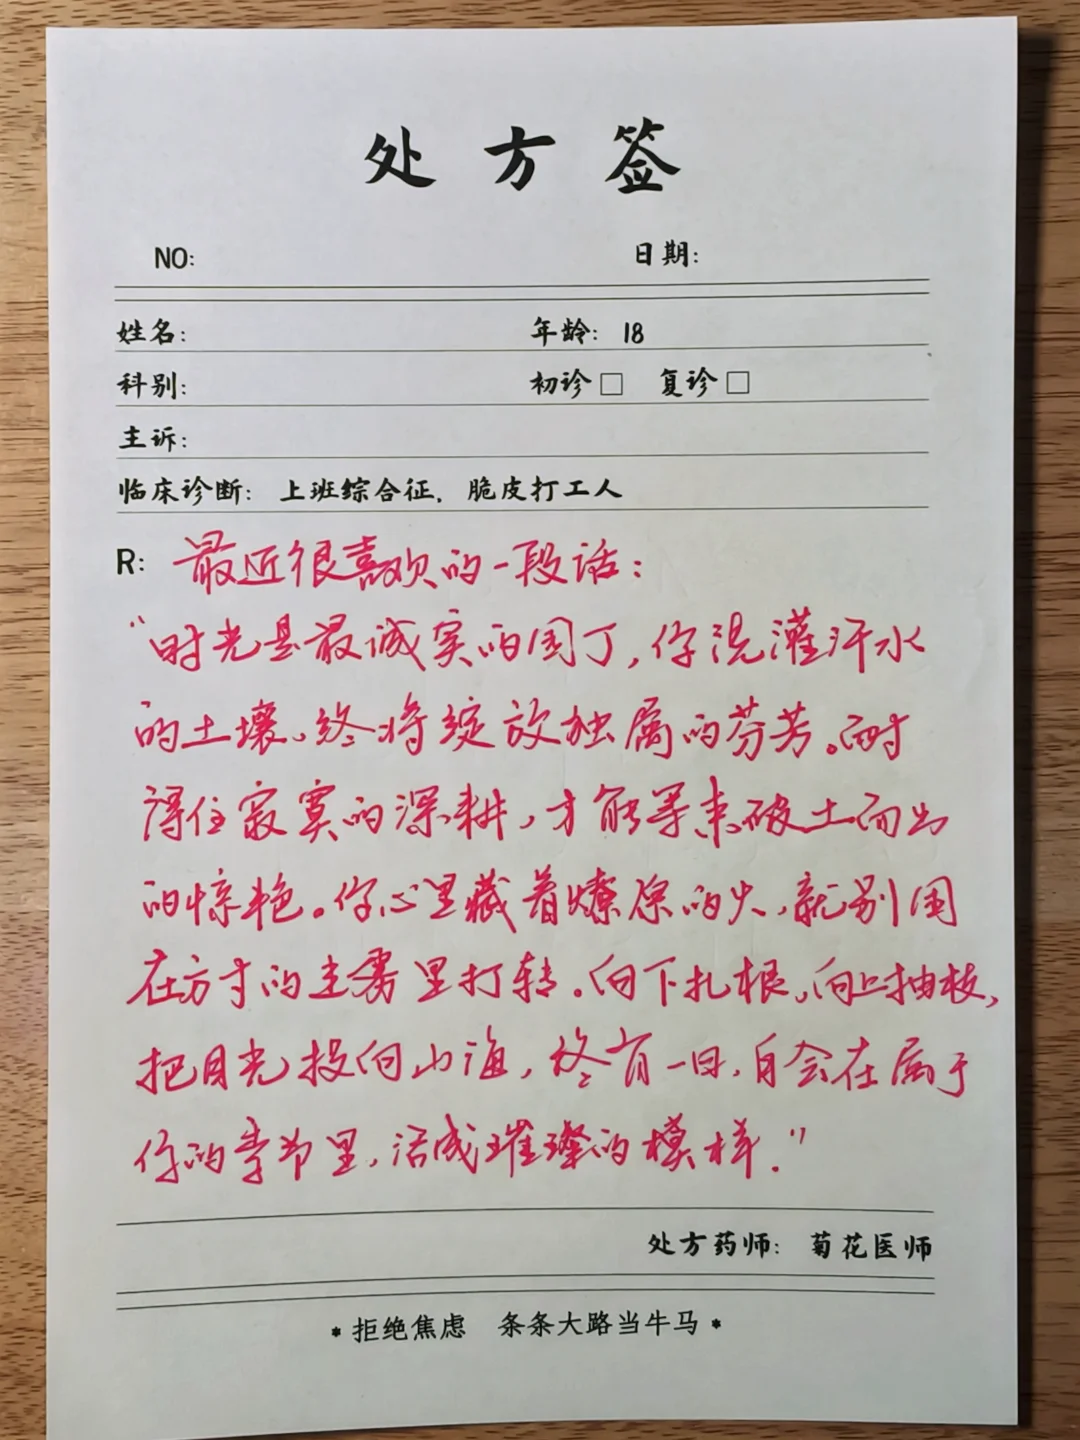 处方签
NO: 日期:
姓名: 年龄: 18
科别: 初诊□ 复诊□
主诉:
临床诊断: 上班综合征, 脆皮打工人
R: 最近很喜欢的一段话:
“时光是最诚实的园丁,你浇灌汗水
的土壤,终将绽放独属的芬芳。耐
得住寂寞的深耕,才能等来破土而出
的惊艳。你心里藏着燎原的火,就别困
在方寸的尘雾里打转。向下扎根,向上抽枝,
把目光投向山海,终有一日,自会在属于
你的章节里,活成璀璨的模样.”
处方药师: 菊花医师
*拒绝焦虑 条条大路当牛马*